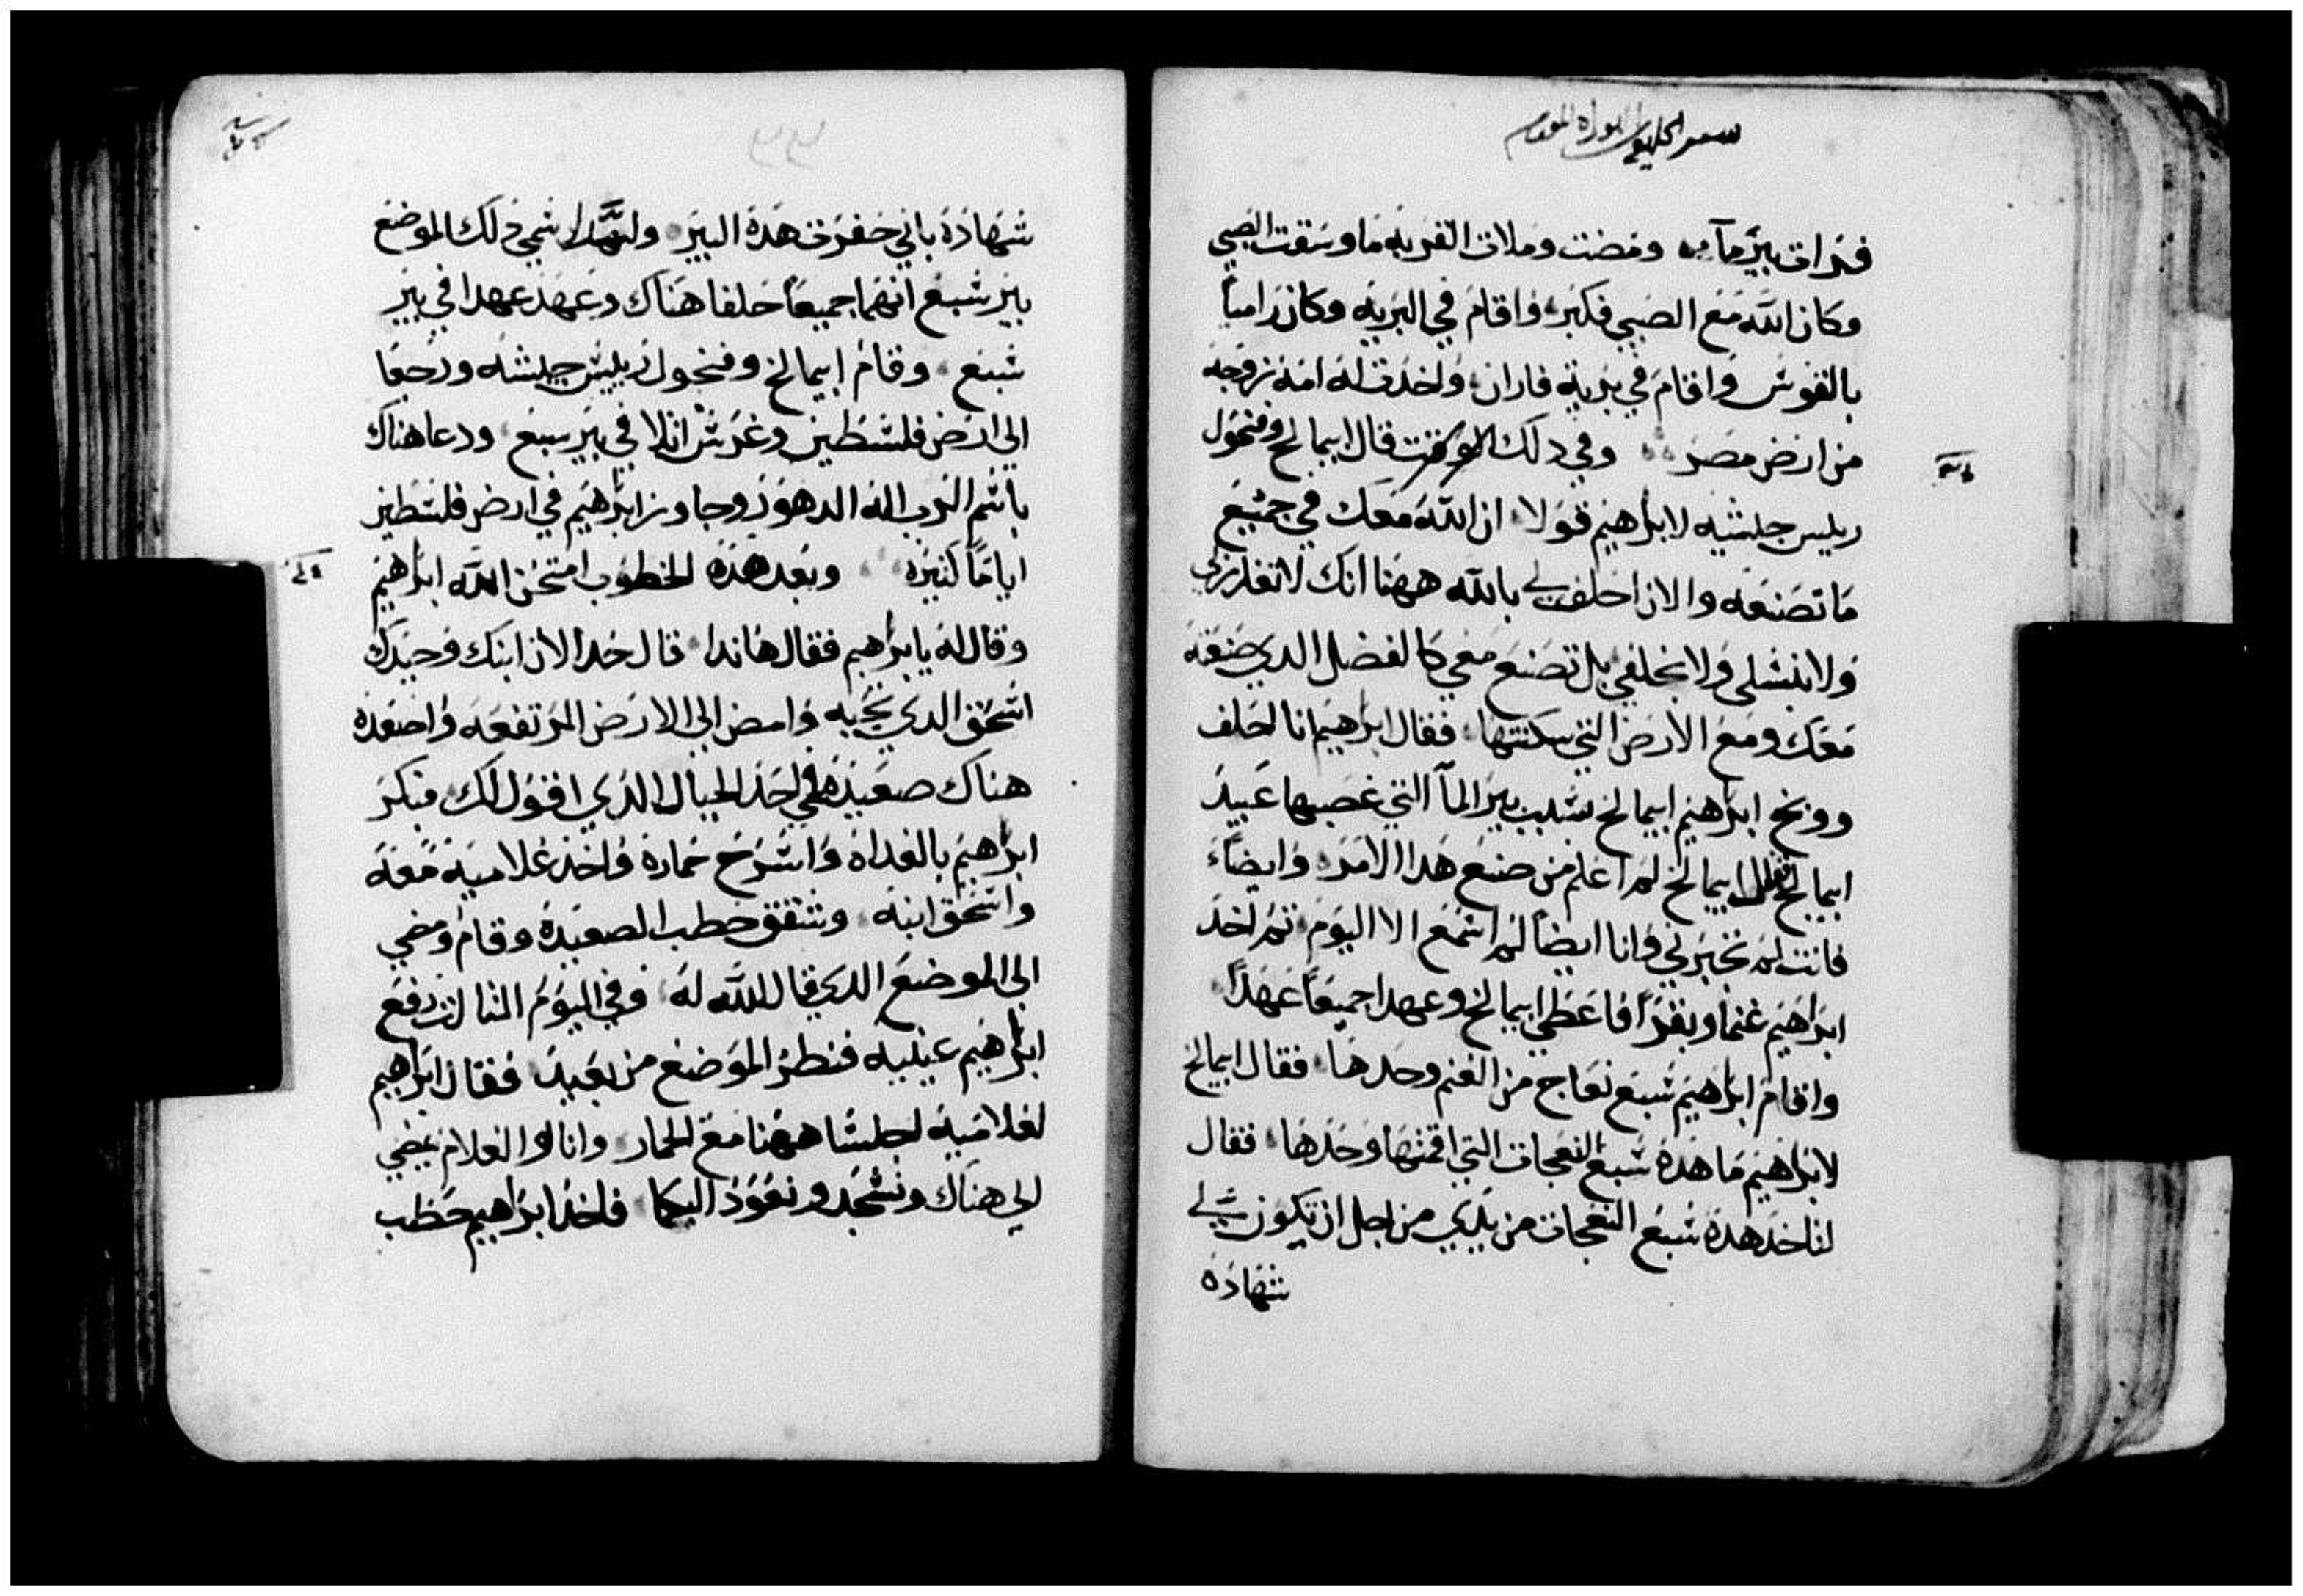 سفر الخليقه التوراه المقدسه
فرات بير مآ ومضت وملات القربه ما وسقت الصبي
وكان الله مع الصبي فكبر واقام في البريه وكان راميا
بالقوس واقام في برية فاران واخدت له امه زوجه
من ارض مصر وفي دلك الوقت قال ابيمالخ وفنحول
رييس جيشه لابراهيم قولا ان الله معك في جميع
ما تصنعه والان احلف لي بالله ههنا انك لا تغدر بي
ولا بنسلي ولا بخلفي بل تصنع معي كالفضل الدي صنعته
معك ومع الارض التي سكنتها فقال ابراهيم انا احلف
ووبخ ابراهيم ابيمالخ بسبب بير المآ التي غصبها عبيد
ابيمالخ فقال ابيمالخ لم اعلم من صنع هدا الامر وايضا
فانت لم تخبرني وانا ايضا لم اسمع الا اليوم تم اخد
ابراهيم غنما وبقرا فاعطي ابيمالخ وعهدا جميعا عهدا
واقام ابراهيم سبع نعاج من الغنم وحدها فقال ابيمالخ
لابراهيم ما هده سبع النعجات التي اقمتها وحدها فقال
لتاخد هده سبع النعجات من يدي من اجل ان تكون لي
شهاده
شهادة باني حفرت هده البير ولهدا سمي دلك الموضع
بير شبع انهما جميعا حلفا هناك وعهد عهدا في بير
شبع وقام ابيمالخ وفنحول رييس جيشه ورجعا
الي ارض فلسطين وغرس اتلا في بير سبع ودعا هناك
باسم الرب اله الدهور وجاور ابراهيم في ارض فلسطين
اياما كتيره وبعد هده الخطوب امتحن الله ابراهيم
وقال له يا ابراهيم فقال هانذا قال خد الان ابنك وحيدك
اسحق الدي تحبه وامض الي الارض المرتفعه واصعده
هناك صعيده علي احد الجبال الذي اقول لك فبكر
ابراهيم بالغداه واسرج حماره واخد غلاميه معه
واسحق ابنه وشقق حطب الصعيده وقام ومضي
الي الموضع الدي قال الله له وفي اليوم التالت رفع
ابراهيم عينيه فنظر الموضع من بعيد فقال ابراهيم
لغلاميه اجلسا ههنا مع الحمار وانا والغلام نمضي
الي هناك ونسجد ونعود اليكما فاخد ابراهيم حطب